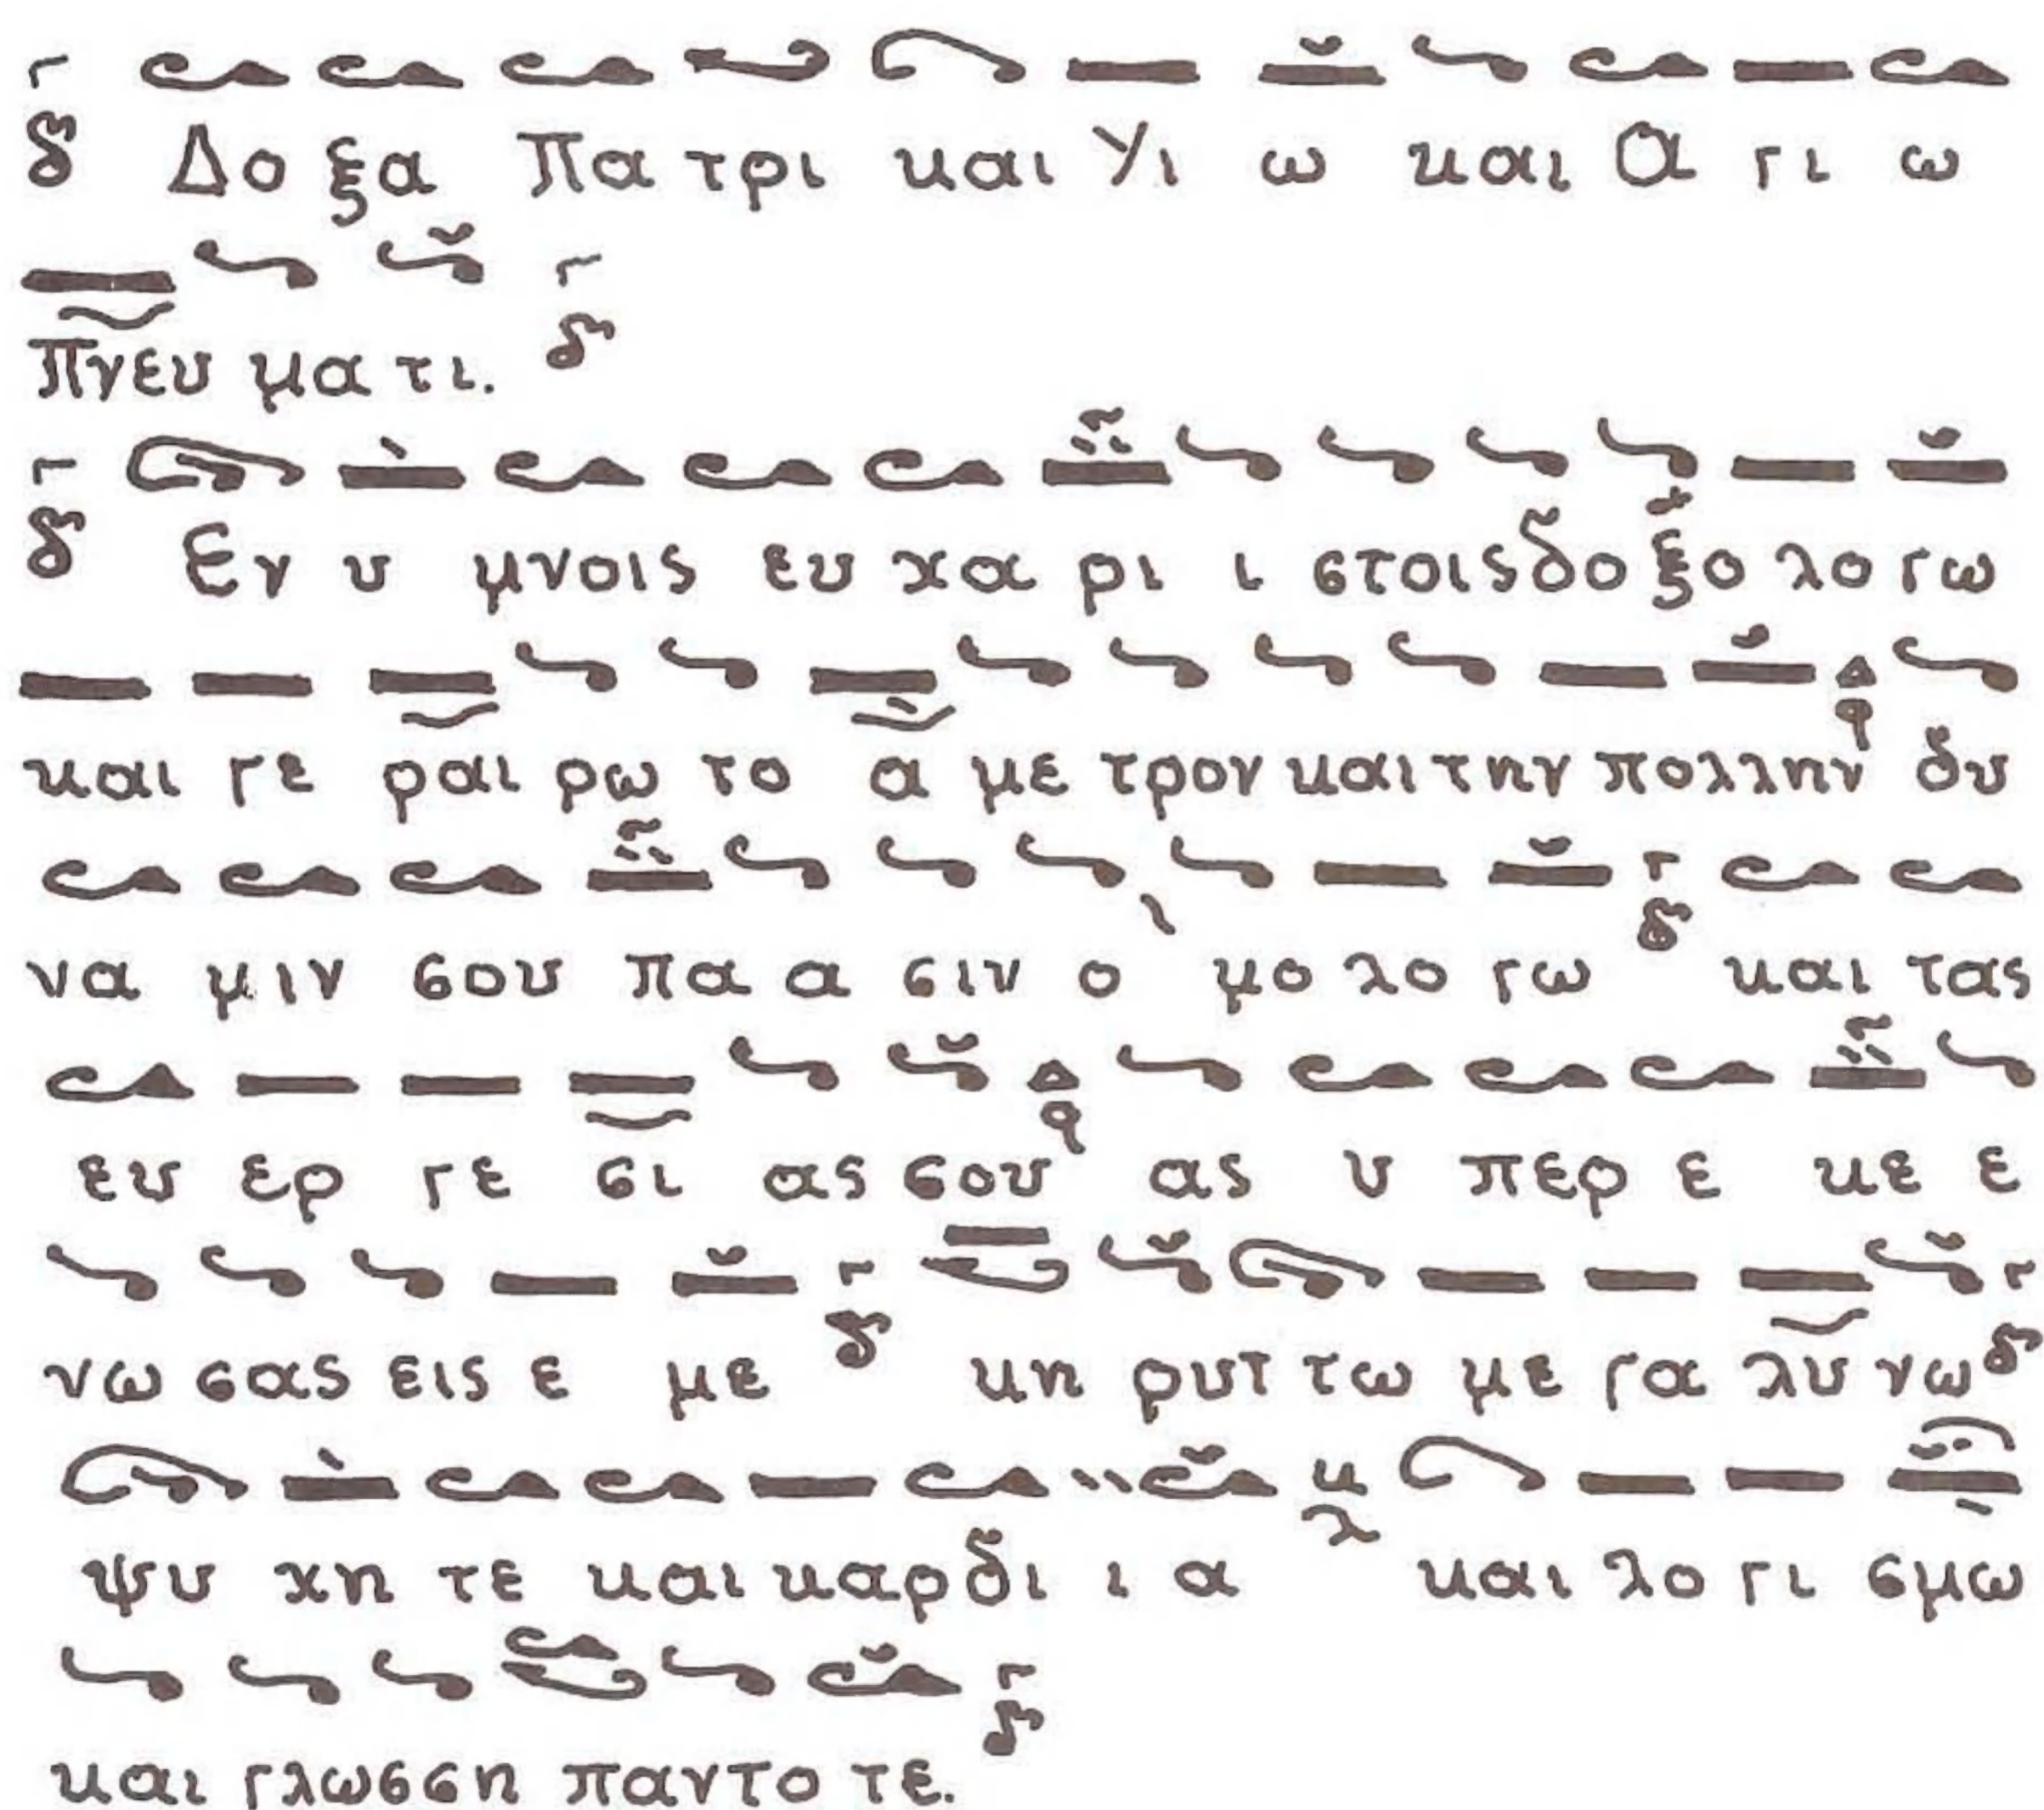 Δο ξα Πα τρι και Υι ω και Α γι ω
Πνευ μα τι.
Εν υ μνοις ευ χα ρι ι στοις δο ξο λο γω
και γε ραι ρω το α με τρον και την πολλην δυ
να μιν σου πα α σιν ο μο λο γω και τας
ευ ερ γε σι ας σου ας υ περ ε κε ε
νω σας εις ε με κη ρυτ τω με γα λυ νω
ψυ χη τε και καρ δι ι α και λο γι σμω
και γλωσση παντο τε.